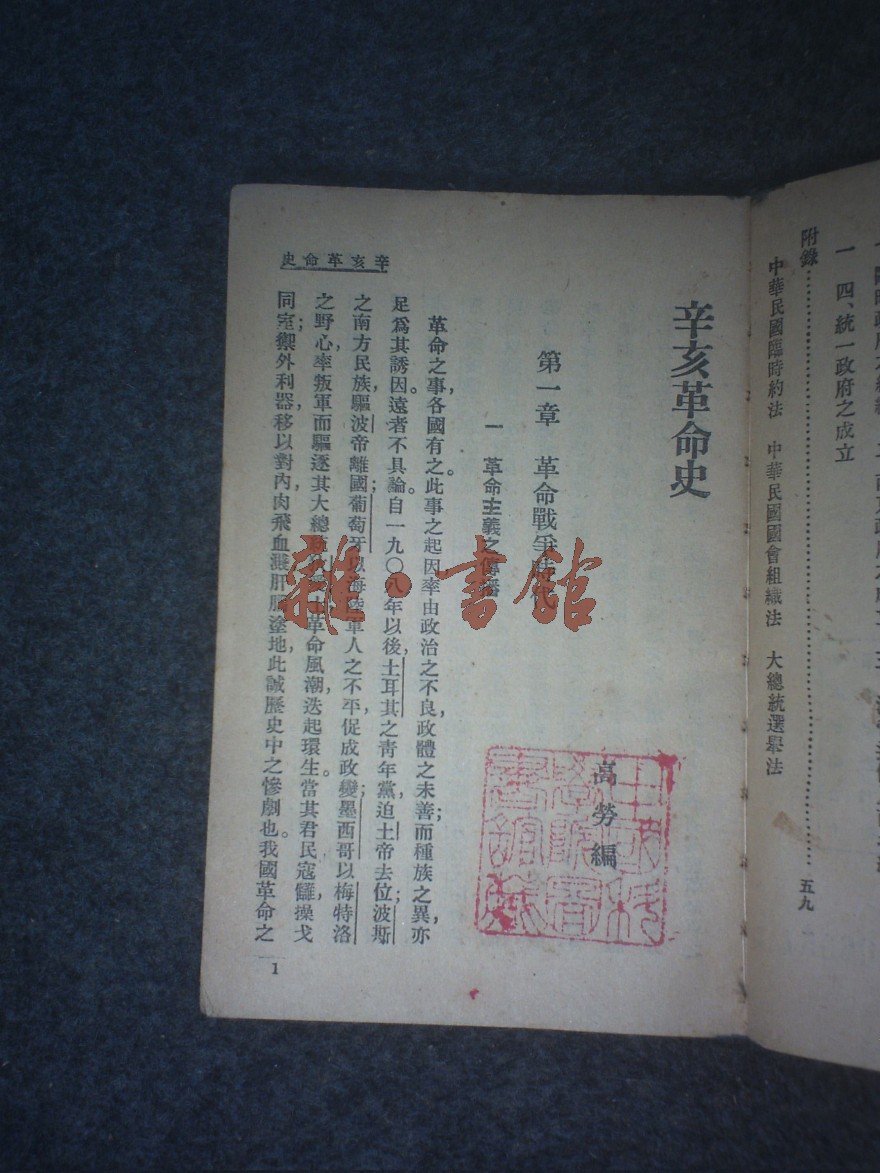 附錄……………………五九
中華民國臨時約法　中華民國國會組織法　大總統選舉法
一四、統一政府之成立
辛亥革命史
高勞編
第一章　革命戰爭時代
一　革命主義之傳播
革命之事，各國有之。此事之起因率由政治之不良，政體之未善；而種族之異，亦
足爲其誘因。遠者不具論。自一九〇八年以後，土耳其之青年黨，迫土帝去位；波斯
之南方民族，驅波帝離國；葡萄牙以海陸軍人之不平，促成政變；墨西哥以梅特洛
之野心，率叛軍而驅逐其大總統；革命風潮，迭起環生。當其君民寇讎，操戈
同室；禦外利器，移以對內，肉飛血濺，肝腦塗地，此誠歷史中之慘劇也。我國革命之
辛亥革命史
1
雜·書館